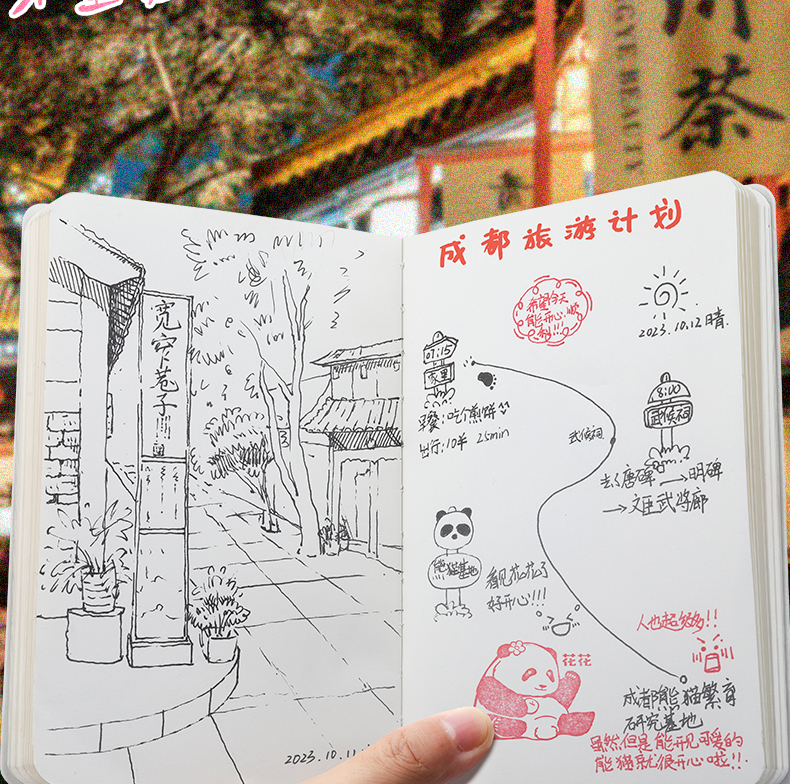 川
茶
GYE BEAUTY
贡
宽窄巷子
2023.10.11
成都旅游计划
希望今天
能开心顺
利!!!
2023.10.12 晴.
07:15
家里
早餐:吃个煎饼
出行:10羊 25min
武侯祠
8:00
武侯祠
去唐碑→明碑
→文臣武将廊
熊猫基地
看见花花了
好开心!!!
人也超多!!
花花
成都熊猫繁育
研究基地
虽然但是能见可爱的
熊猫就很开心啦!!